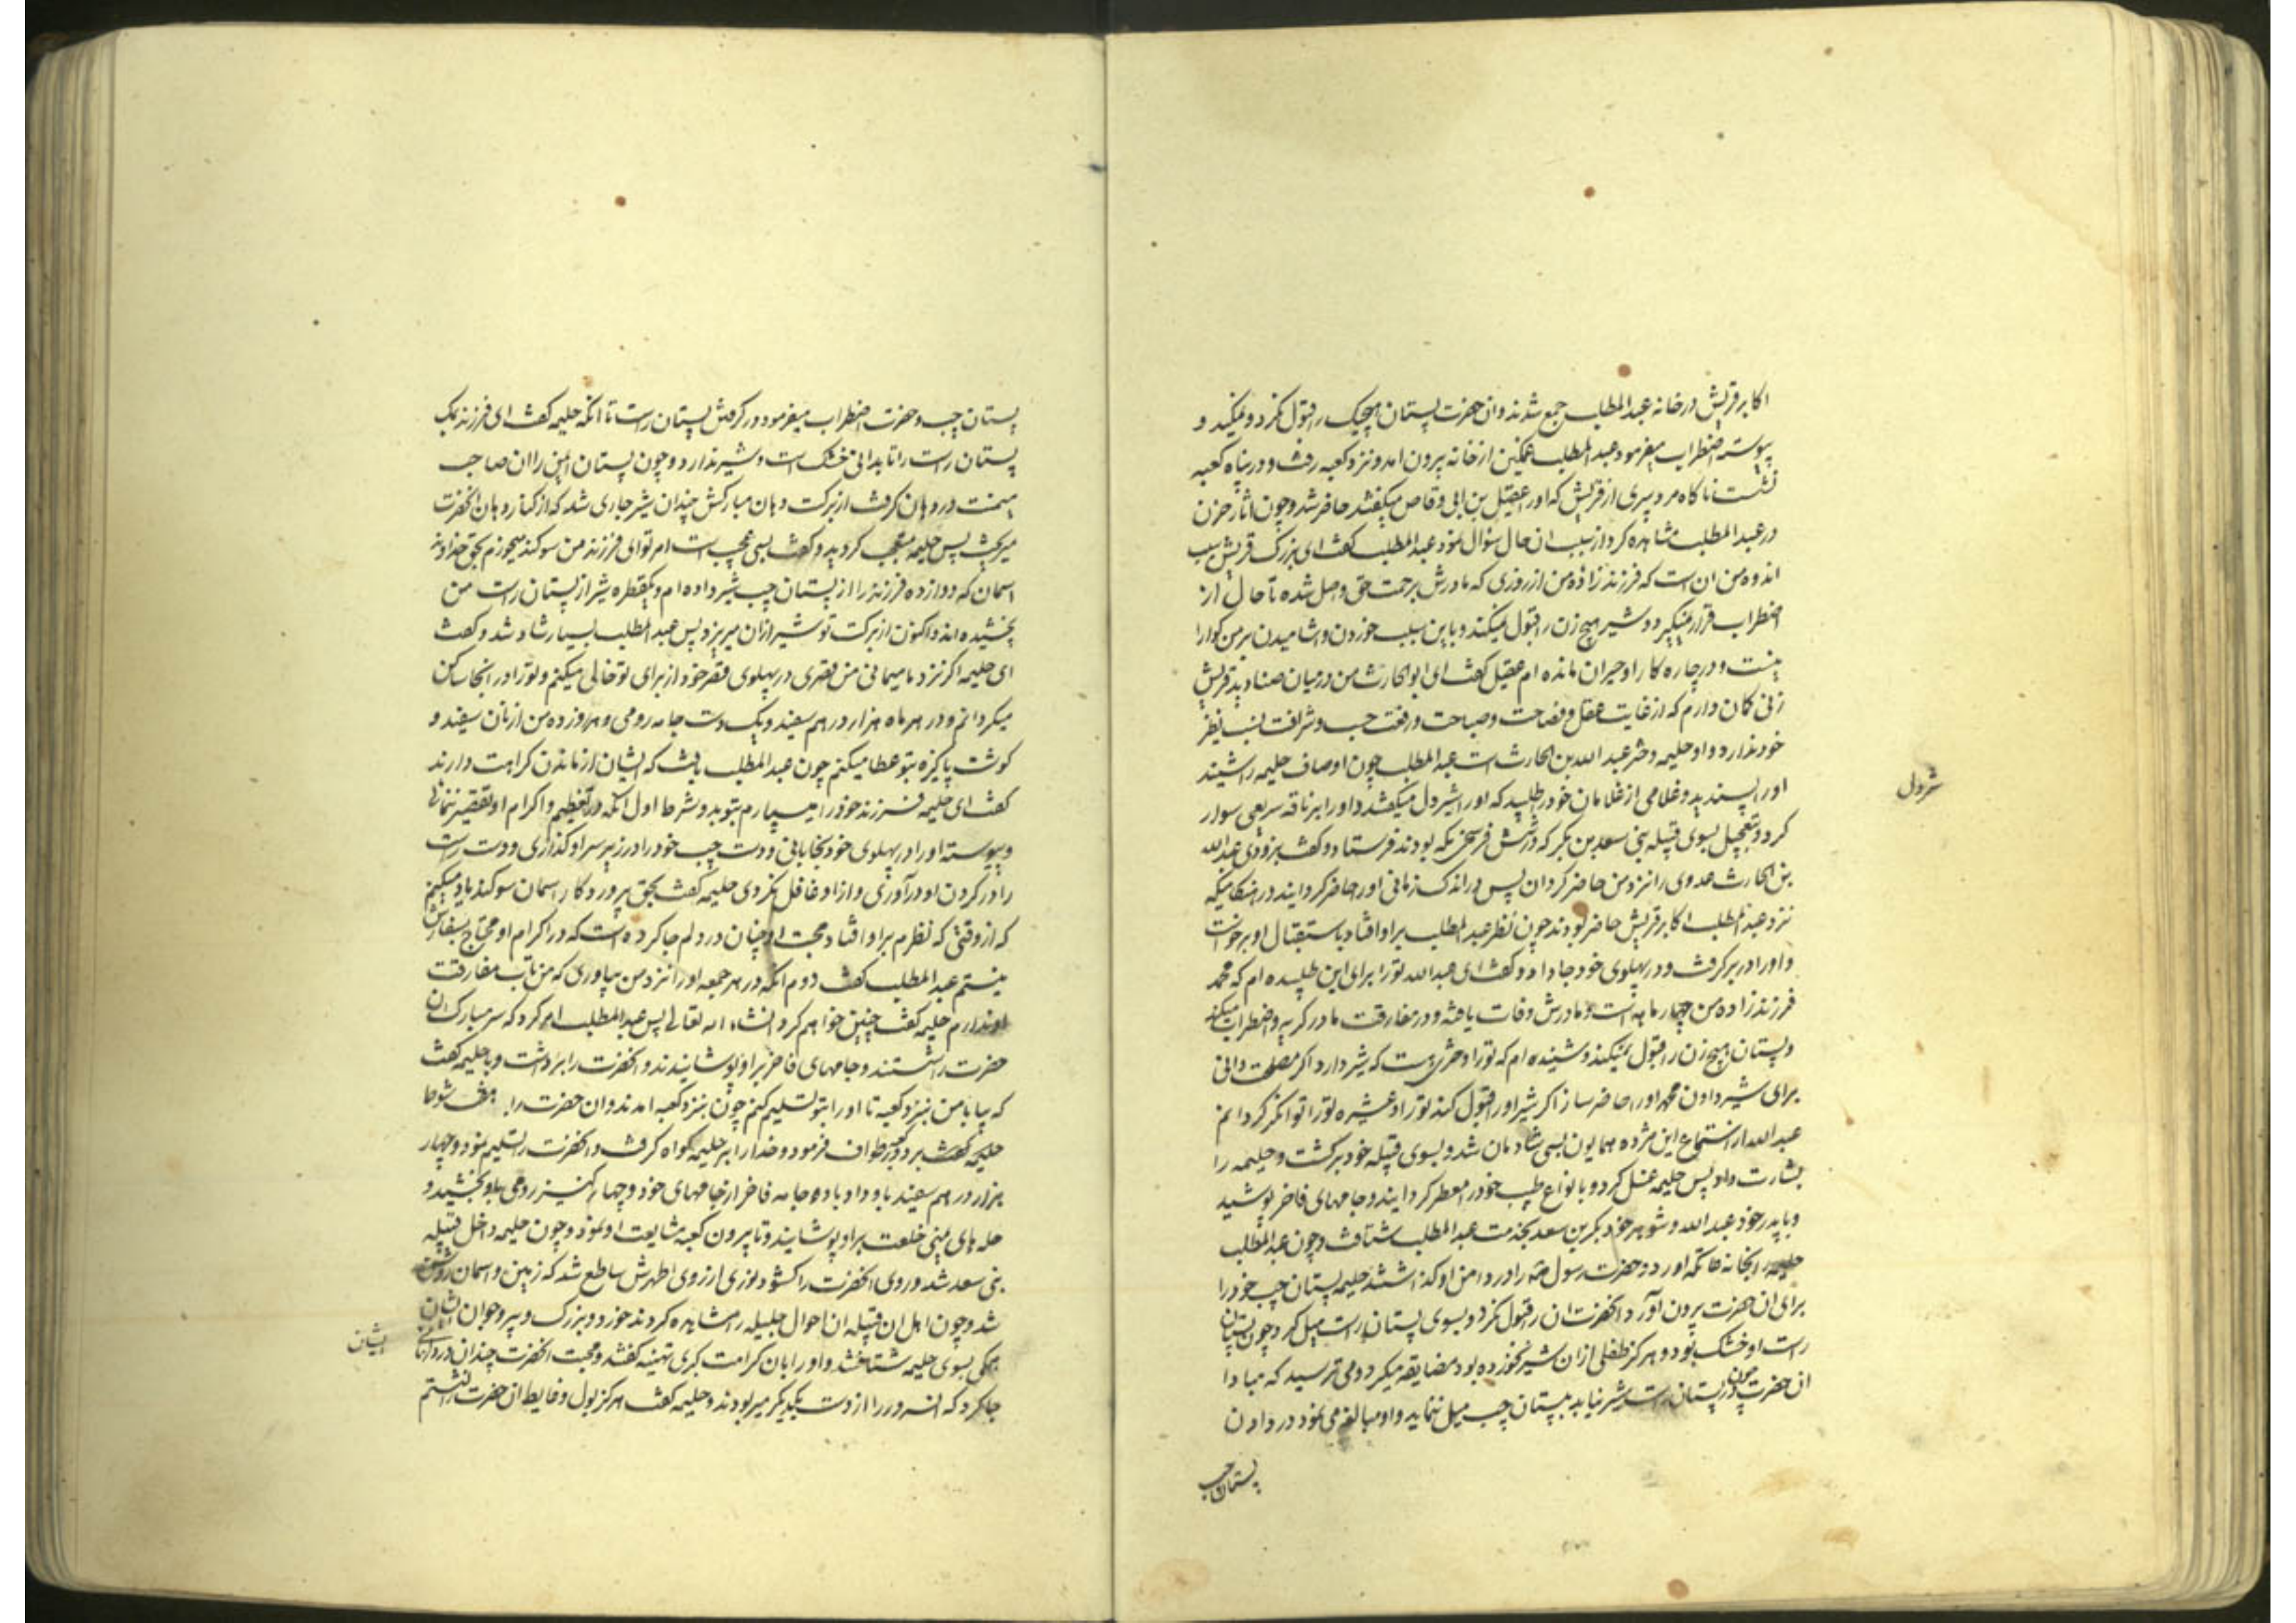 اکابر قریش در خانه عبدالمطلب جمع شدند و ان حضرت پستان هیچیک را قبول نکرد و نمیکید و
پیوسته اضطراب میفرمود عبدالمطلب غمکین از خانه بیرون امد و نزد کعبه رفت و در پناه کعبه
نشست ناکاه مرد پیری از قریش که او را عقیل بن ابی وقاص میکفتند حاضر شد و چون اثار حزن
در عبدالمطلب مشاهده کرد از سبب ان حال سؤال نمود عبدالمطلب کفت ای بزرک قریش سبب
اندوه من ان است که فرزند زاده من از روزی که مادرش برحمت حق واصل شده تا حال از
اضطراب قرار نمیکیرد و شیر هیچ زن را قبول نمیکند و باین سبب خوردن و اشامیدن بر من کوارا
نیست و در چاره کار او حیران مانده ام عقیل کفت ای ابو الحارث من در میان صنادید قریش
زنی کمان دارم که از غایت عقل و فصاحت و صباحت و رفعت حسب و شرافت نسب نظیر
خود ندارد و او حلیمه دختر عبد الله بن الحارث است عبدالمطلب چون اوصاف حلیمه را شنید
او را پسندید و غلامی از غلامان خود را طلبید که او را شیردل میکفتند و او را بر ناقه سریعی سوار
شمردل
کرد و بتعجیل بسوی قبیله بنی سعد بن بکر که در شش فرسخی مکه بودند فرستاد و کفت بزودی عبدالله
بن الحارث عدوی را نزد من حاضر کردان پس در اندک زمانی او را حاضر کردانید در هنکامیکه
نزد عبدالمطلب اکابر قریش حاضر بودند چون نظر عبدالمطلب بر او افتاد باستقبال او برخواست
و او را در بر کرفت و در پهلوی خود جا داد و کفت ای عبدالله تو را برای این طلبیده ام که محمد
فرزند زاده من چهار ماهه است و مادرش وفات یافته و در مفارقت مادر کریه و اضطراب میکند
و پستان هیچ زن را قبول نمیکند و شنیده ام که تو را دختری هست که شیر دارد اکر مصلحت دانی
برای شیر دادن محمد او را حاضر ساز اکر شیر او را قبول کند تو را و عشیره تو را توانکر کردانم
عبدالله از استماع این مژده همایون بسی شادمان شد و بسوی قبیله خود برکشت و حلیمه را
بشارت داد پس حلیمه غسل کرد و بانواع طیب خود را معطر کردانید و جامهای فاخر پوشید
و با پدر خود عبد الله و شوهر خود بکر بن سعد بخدمت عبد المطلب شتافت و چون عبدالمطلب
حلیمه را بخانه عاتکه اورد و حضرت رسول را در دامن او کذاشتند حلیمه پستان چپ خود را
برای ان حضرت بیرون آورد انحضرت ان را قبول نکرد و بسوی پستان راست میل کرد چون پستان
راست او خشک بود و هرکز طفلی ازان شیر نخورده بود مضایقه میکرد و می ترسید که مبادا
ان حضرت چون در پستان راست شیر نیابد بپستان چپ میل ننماید و او مبالغه می نمود در دادن
پستان چپ
پستان چپ و حضرت اضطراب میفرمود در کرفتن پستان راست تا انکه حلیمه کفت ای فرزند بمک
پستان راست را تا بدانی خشک است و شیر ندارد و چون پستان ایمن را ان صاحب
میمنت در دهان کرفت از برکت دهان مبارکش چندان شیر جاری شد که از کنار دهان انحضرت
میریخت پس حلیمه متعجب کردید و کفت بسی عجیب است امر تو ای فرزند من سوکند میخورم بحق خداوند
اسمان که دوازده فرزند را از پستان چپ شیر داده ام و یکقطره شیر از پستان راست من
نچشیده اند و اکنون از برکت تو شیر ازان میریزد پس عبد المطلب بسیار شاد شد و کفت
ای حلیمه اکر نزد ما میمانی من قصری در پهلوی قصر خود از برای تو خالی میکنم و تو را در انجا ساکن
میکردانم و در هر ماه هزار درهم سفید و یک دست جامه رومی و هر روز ده من از نان سفید و
کوشت پاکیزه بتو عطا میکنم چون عبدالمطلب یافت که ایشان از ماندن کراهت دارند
کفت ای حلیمه فرزند خود را میسپارم بتو بدو شرط اول انکه در تعظیم و اکرام او تقصیر ننمائی
و پیوسته او را در پهلوی خود بخابانی و دست چپ خود را در زیر سر او کذاری و دست راست
را در کردن او درآوری و از او غافل نکردی حلیمه کفت بحق پروردکار اسمان سوکند یاد میکنم
که از وقتی که نظرم بر او افتاد محبت او چنان در دلم جا کرده است که در اکرام او محتاج بسفارش
نیستم عبد المطلب کفت دوم انکه در هر جمعه او را نزد من بیاوری که من تاب مفارقت
او ندارم حلیمه کفت چنین خواهم کرد انشاء الله تعالی پس عبدالمطلب امر کرد که سر مبارک ان
حضرت را شستند و جامهای فاخر بر او پوشانیدند و انحضرت را برداشت و با حلیمه کفت
که بیا با من بنزد کعبه تا او را بتو تسلیم کنم چون بنزد کعبه امدند و ان حضرت را هفت شوط
بر دور کعبه طواف فرمود و خدا را بر حلیمه کواه کرفت و انحضرت را تسلیم نمود و چهار
هزار درهم سفید باو داد با ده جامه فاخر از جامهای خود و چهار کنیز رومی باو بخشید و
حله های یمنی خلعت بر او پوشانید و تا بیرون کعبه مشایعت او نمود و چون حلیمه داخل قبیله
بنی سعد شد و روی انحضرت را کشود نوری از روی اطهرش ساطع شد که زمین و اسمان روشن
شد و چون اهل ان قبیله ان احوال جلیله را مشاهده کردند خورد و بزرک و پیر و جوان ایشان
همکی بسوی حلیمه شتافتند و او را بان کرامت کبری تهنیه کفتند و محبت انحضرت چندان در دلهای
ایشان
جا کرد که ان سرور را از دست یکدیکر میربودند و حلیمه کفت هرکز بول و غایط ان حضرت را نشستم